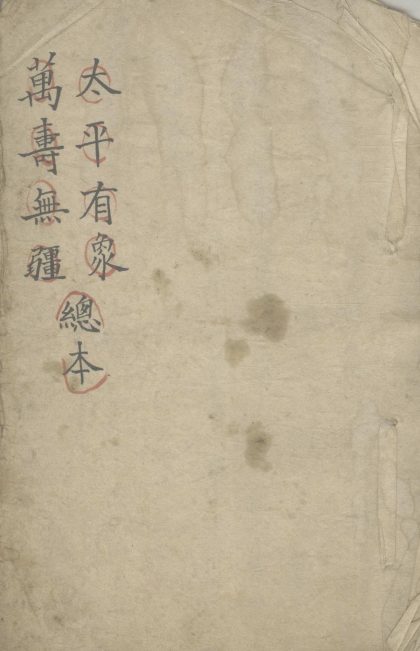 太平有象
萬壽無疆
總本